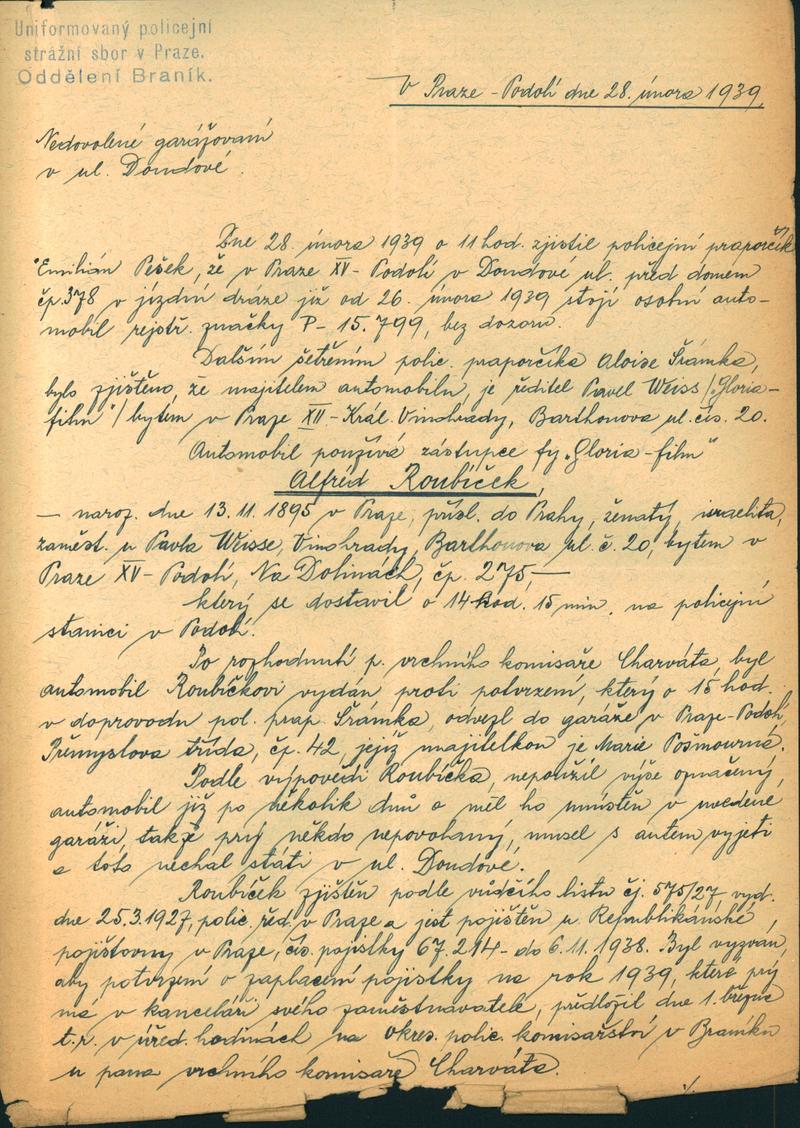 Uniformovaný policejní
strážní sbor v Praze.
Oddělení Braník.
V Praze - Podolí dne 28. února 1939.
Nedovolené garážovaní
v ul. Doudové.
Dne 28. února 1939 o 11 hod. zjistil policejní praporčík
Emilián Pešek, že v Praze XV- Podolí v Doudové ul. před domem
čp. 378 v jízdní dráze již od 26. února 1939 stojí osobní auto-
mobil rejstř. značky P- 15.799, bez dozoru.
Dalším šetřením polic. praporčíka Aloise Šrámka,
bylo zjištěno, že majitelem automobilu, je ředitel Pavel Weiss /"Gloria-
film"/ bytem v Praze XII- Král. Vinohrady, Barthonova ul. čís. 20.
Automobil používá zástupce fy „Gloria-film"
Alfréd Roubíček,
— naroz. dne 13. 11. 1895 v Praze, přísl. do Prahy, ženatý, israelita,
zaměst. u Pavla Weisse, Vinohrady, Barthonova ul. č. 20, bytem v
Praze XV- Podolí, Na Dolinách, čp. 275,—
který se dostavil o 14 hod. 15 min. na policejní
stanici v Podolí.
Po rozhodnutí p. vrchního komisaře Charváta, byl
automobil Roubíčkovi vydán proti potvrzení, který o 15 hod.
v doprovodu pol. prap. Šrámka, odvezl do garáže v Praze-Podolí,
Přemyslova třída, čp. 42, jejíž majitelkou je Marie Pošmourná.
Podle výpovědi Roubíčka, nepoužil výše označený
automobil již po několik dnů a měl ho umístěn v uvedené
garáži, takže prý někdo nepovolaný, musel s autem vyjeti
a toto nechal státi v ul. Doudové.
Roubíček zjištěn podle vůdčího listu čj. 575/27, vyd.
dne 25.3.1927, polic. řed. v Praze a jest pojištěn u Republikánské
pojišťovny v Praze, čís. pojistky 67.214- do 6.11.1938. Byl vyzván,
aby potvrzení o zaplacení pojistky na rok 1939, které prý
má v kanceláři svého zaměstnavatele, předložil dne 1. března
t.r. v úřed. hodinách na okres. polic. komisařství v Braníku
u pana vrchního komisaře Charváta.
./.